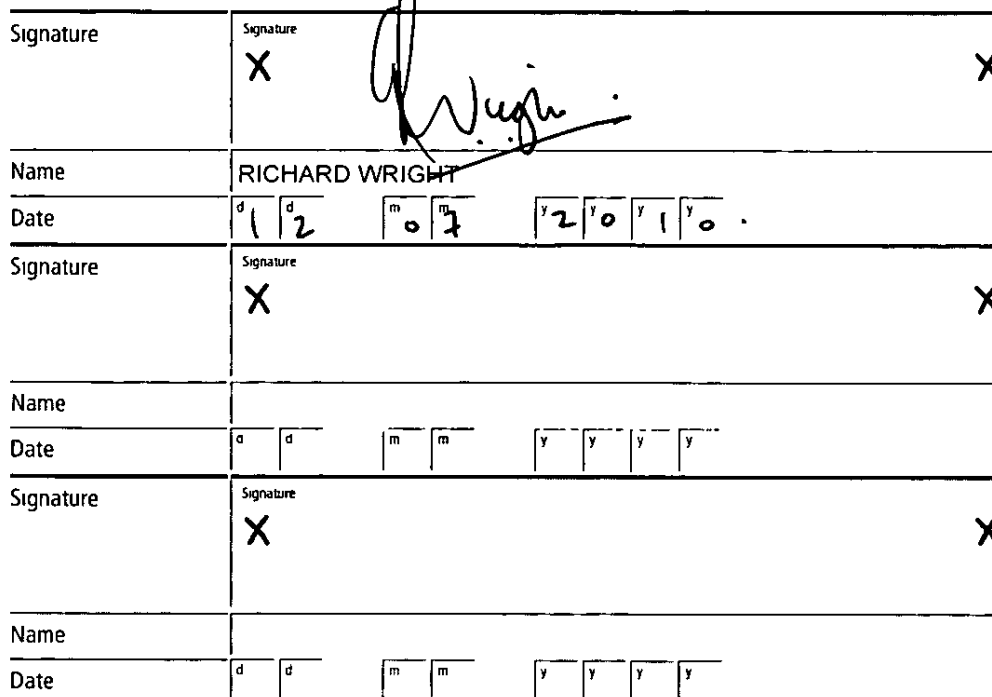 Signature Signature
X X
R Wright
Name RICHARD WRIGHT
Date d 1 d 2 m 0 m 7 y 2 y 0 y 1 y 0
Signature Signature
X X
Name
Date d d m m y y y y
Signature Signature
X X
Name
Date d d m m y y y y